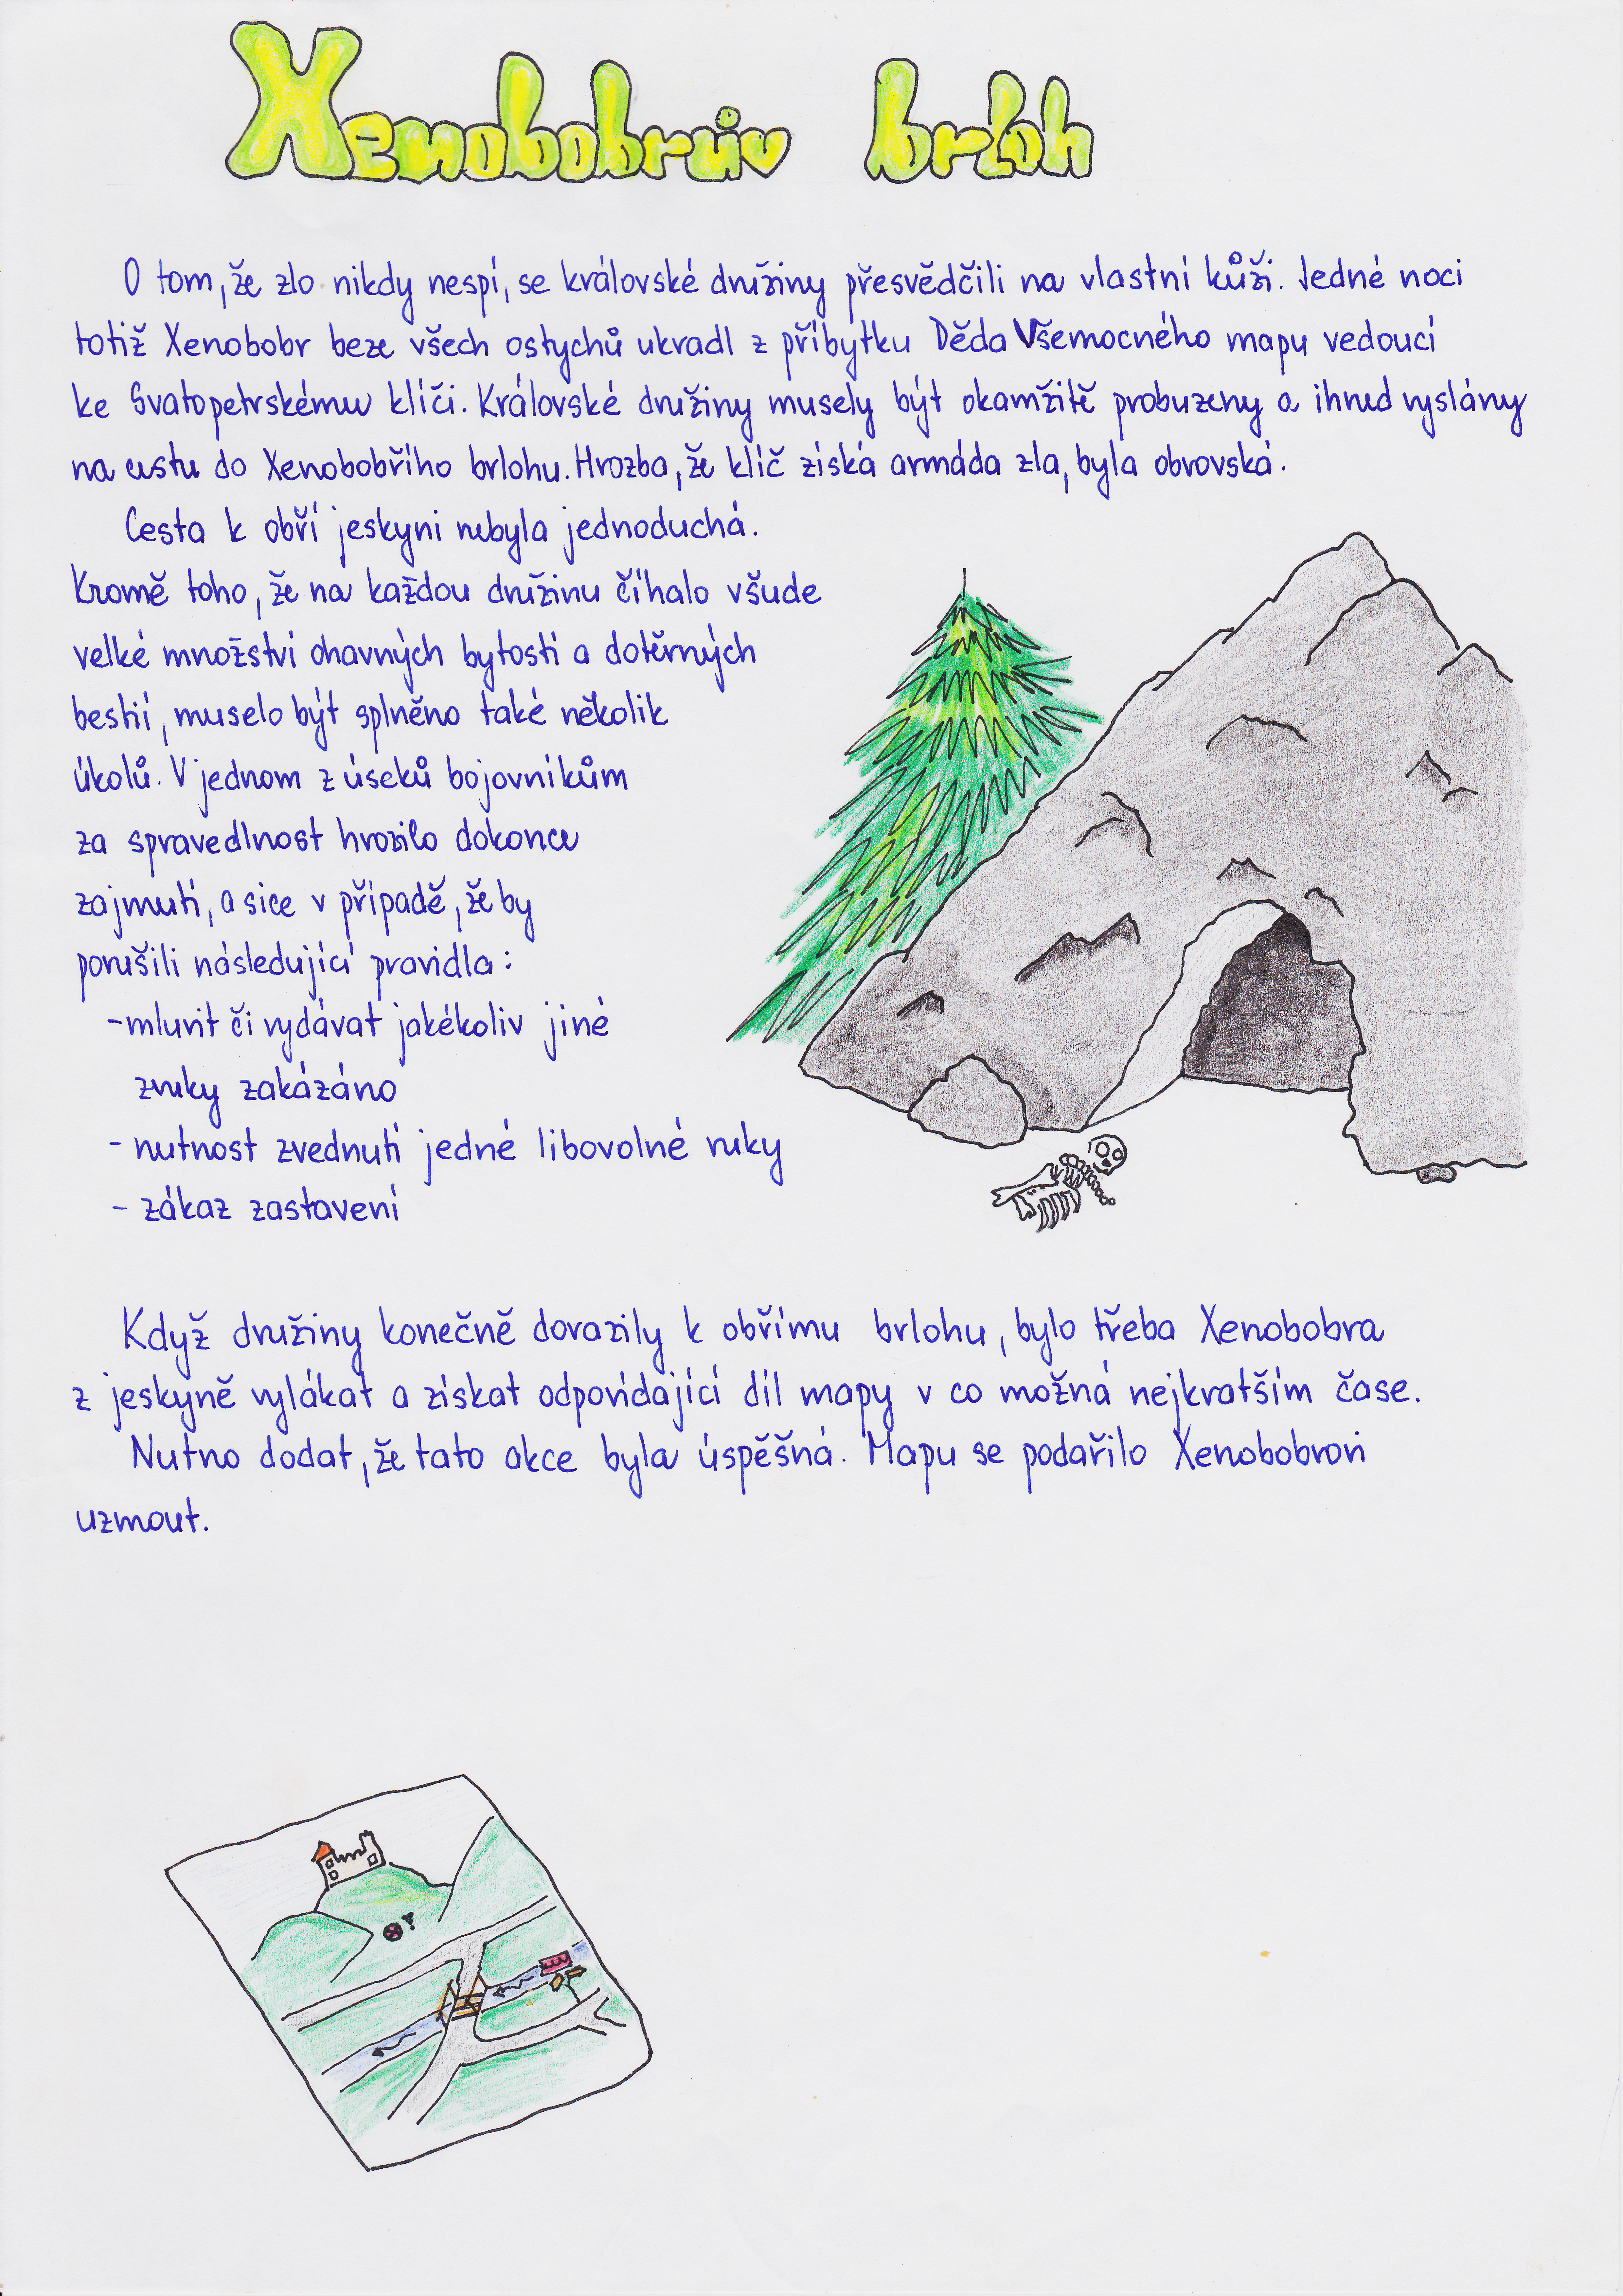 Xenobobrův brloh
O tom, že zlo nikdy nespí, se královské družiny přesvědčili na vlastní kůži. Jedné noci
totiž Xenobobr beze všech ostychů ukradl z příbytku Děda Všemocného mapu vedoucí
ke Svatopetrskému klíči. Královské družiny musely být okamžitě probuzeny a ihned vyslány
na cestu do Xenobobřího brlohu. Hrozba, že klíč získá armáda zla, byla obrovská.
Cesta k obří jeskyni nebyla jednoduchá.
Kromě toho, že na každou družinu číhalo všude
velké množství ohavných bytostí a dotěrných
bestií, muselo být splněno také několik
úkolů. V jednom z úseků bojovníkům
za spravedlnost hrozilo dokonce
zajmutí, a sice v případě, že by
porušili následující pravidla:
- mluvit či vydávat jakékoliv jiné
zvuky zakázáno
- nutnost zvednutí jedné libovolné ruky
- zákaz zastavení
Když družiny konečně dorazily k obřímu brlohu, bylo třeba Xenobobra
z jeskyně vylákat a získat odpovídající díl mapy v co možná nejkratším čase.
Nutno dodat, že tato akce byla úspěšná. Mapu se podařilo Xenobobrovi
uzmout.